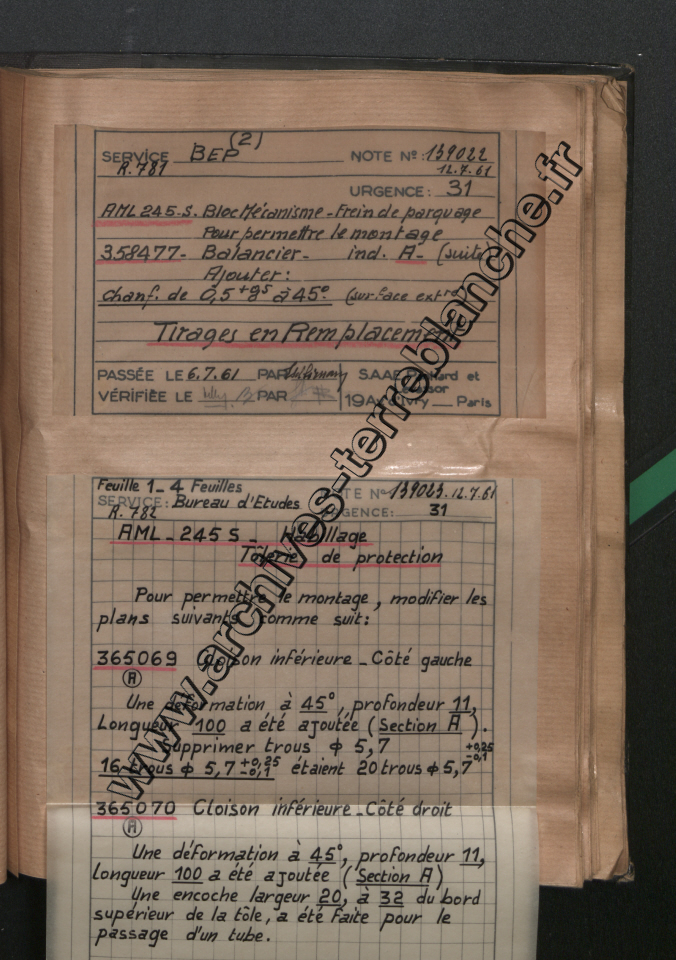 SERVICE BEP (2) NOTE Nº: 139022
R. 781 12.7.61
URGENCE: 31
AML 245-S. Bloc Mécanisme - Frein de parquage
Pour permettre le montage
358477- Balancier- ind. A- (suite)
Ajouter:
chanf. de 0,5 à 45° (surface extre
Tirages en Remplacement
PASSÉE LE 6.7.61 PAR SAAE Panhard et
VÉRIFIÉE LE PAR 19 Av. d'Ivry Paris
Feuille 1_ 4 Feuilles NOTE Nº 139023. 12.7.61
SERVICE: Bureau d'Etudes URGENCE: 31
R. 782
AML _ 245 S _ Habillage
Tôlerie de protection
Pour permettre le montage, modifier les
plans suivants comme suit:
365069 Cloison inférieure _ Côté gauche
A
Une déformation à 45°, profondeur 11,
Longueur 100 a été ajoutée (Section A).
Supprimer trous ϕ 5,7
16 trous ϕ 5,7 +0,25 -0,1 étaient 20 trous ϕ 5,7 +0,25 -0,1
365070 Cloison inférieure _ Côté droit
A
Une déformation à 45°, profondeur 11,
Longueur 100 a été ajoutée (Section A)
Une encoche largeur 20, à 32 du bord
supérieur de la tôle, a été faite pour le
passage d'un tube.
www.archives-terreblanche.fr